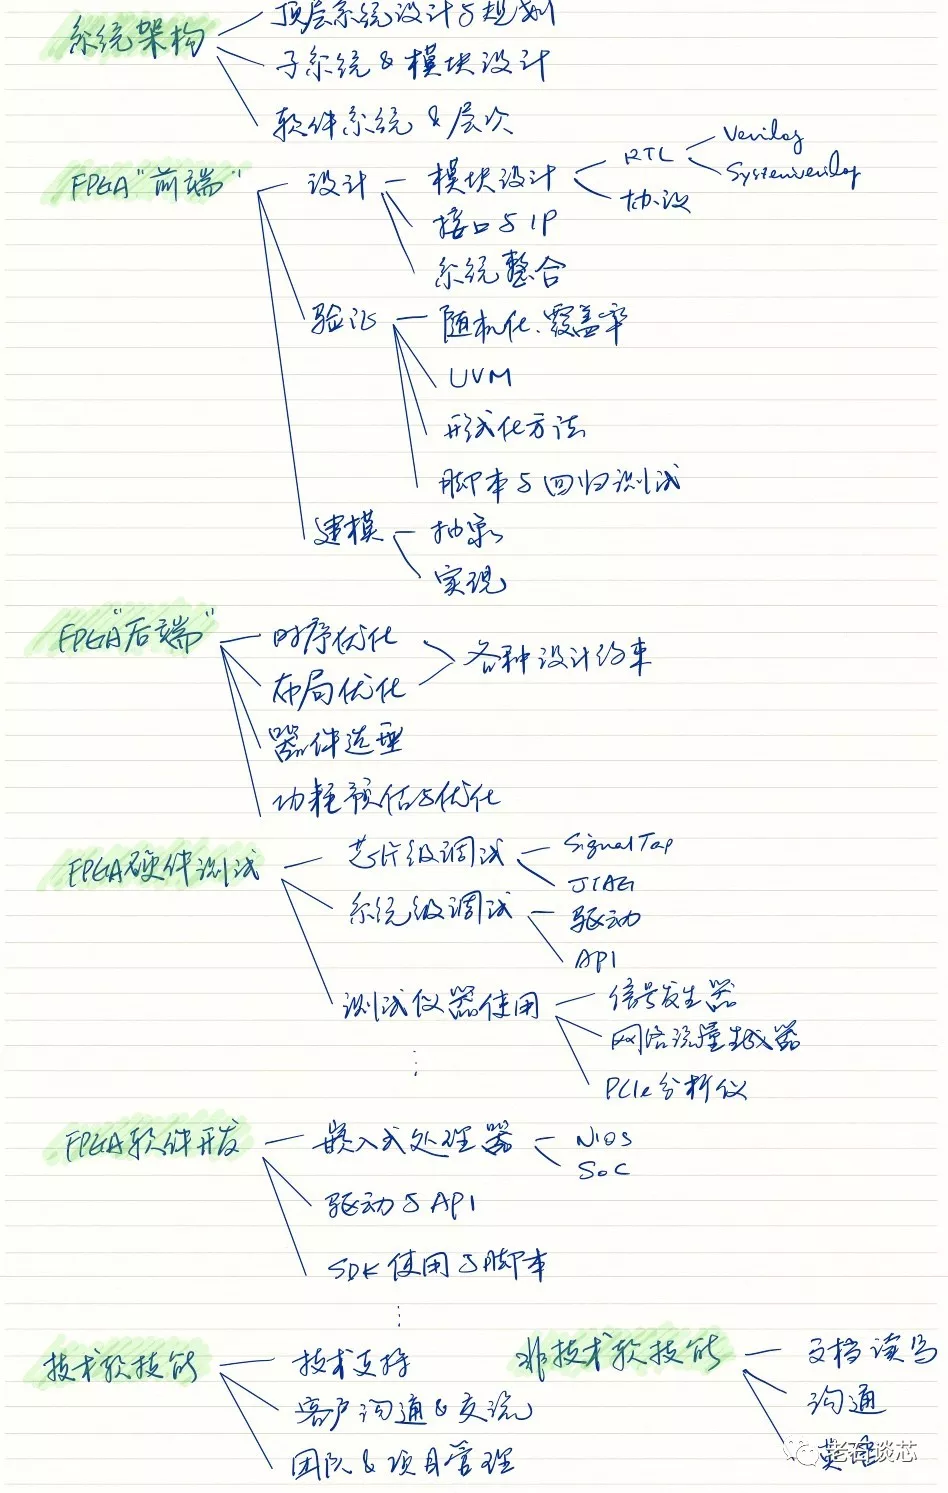 顶层系统设计与规划
系统架构
子系统 & 模块设计
软件系统 & 层次
FPGA "前端"
设计
模块设计
RTL
Verilog
SystemVerilog
协议
接口与IP
系统整合
验证
随机化、覆盖率
UVM
形式化方法
脚本与回归测试
建模
抽象
实现
FPGA "后端"
时序优化
布局优化
各种设计约束
器件选型
功耗预估与优化
FPGA硬件测试
芯片级调试
SignalTap
JTAG
系统级调试
驱动
API
测试仪器使用
信号发生器
网络流量生成器
PCIe分析仪
FPGA软件开发
嵌入式处理器
NIOS
SoC
驱动与API
SDK使用与脚本
技术软技能
技术支持
客户沟通 & 交流
团队 & 项目管理
非技术软技能
文档读写
沟通
英语
老石谈芯